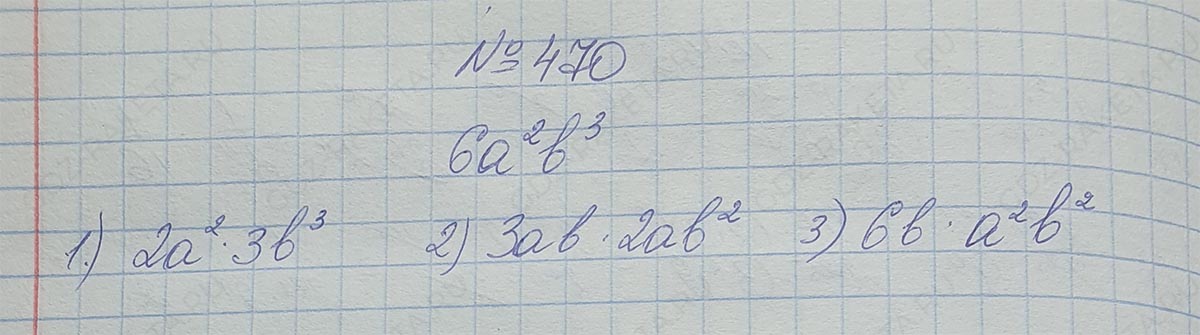 № 470
6a²b³
1.) 2a²·3b³ 2) 3ab·2ab² 3) 6b·a²b²